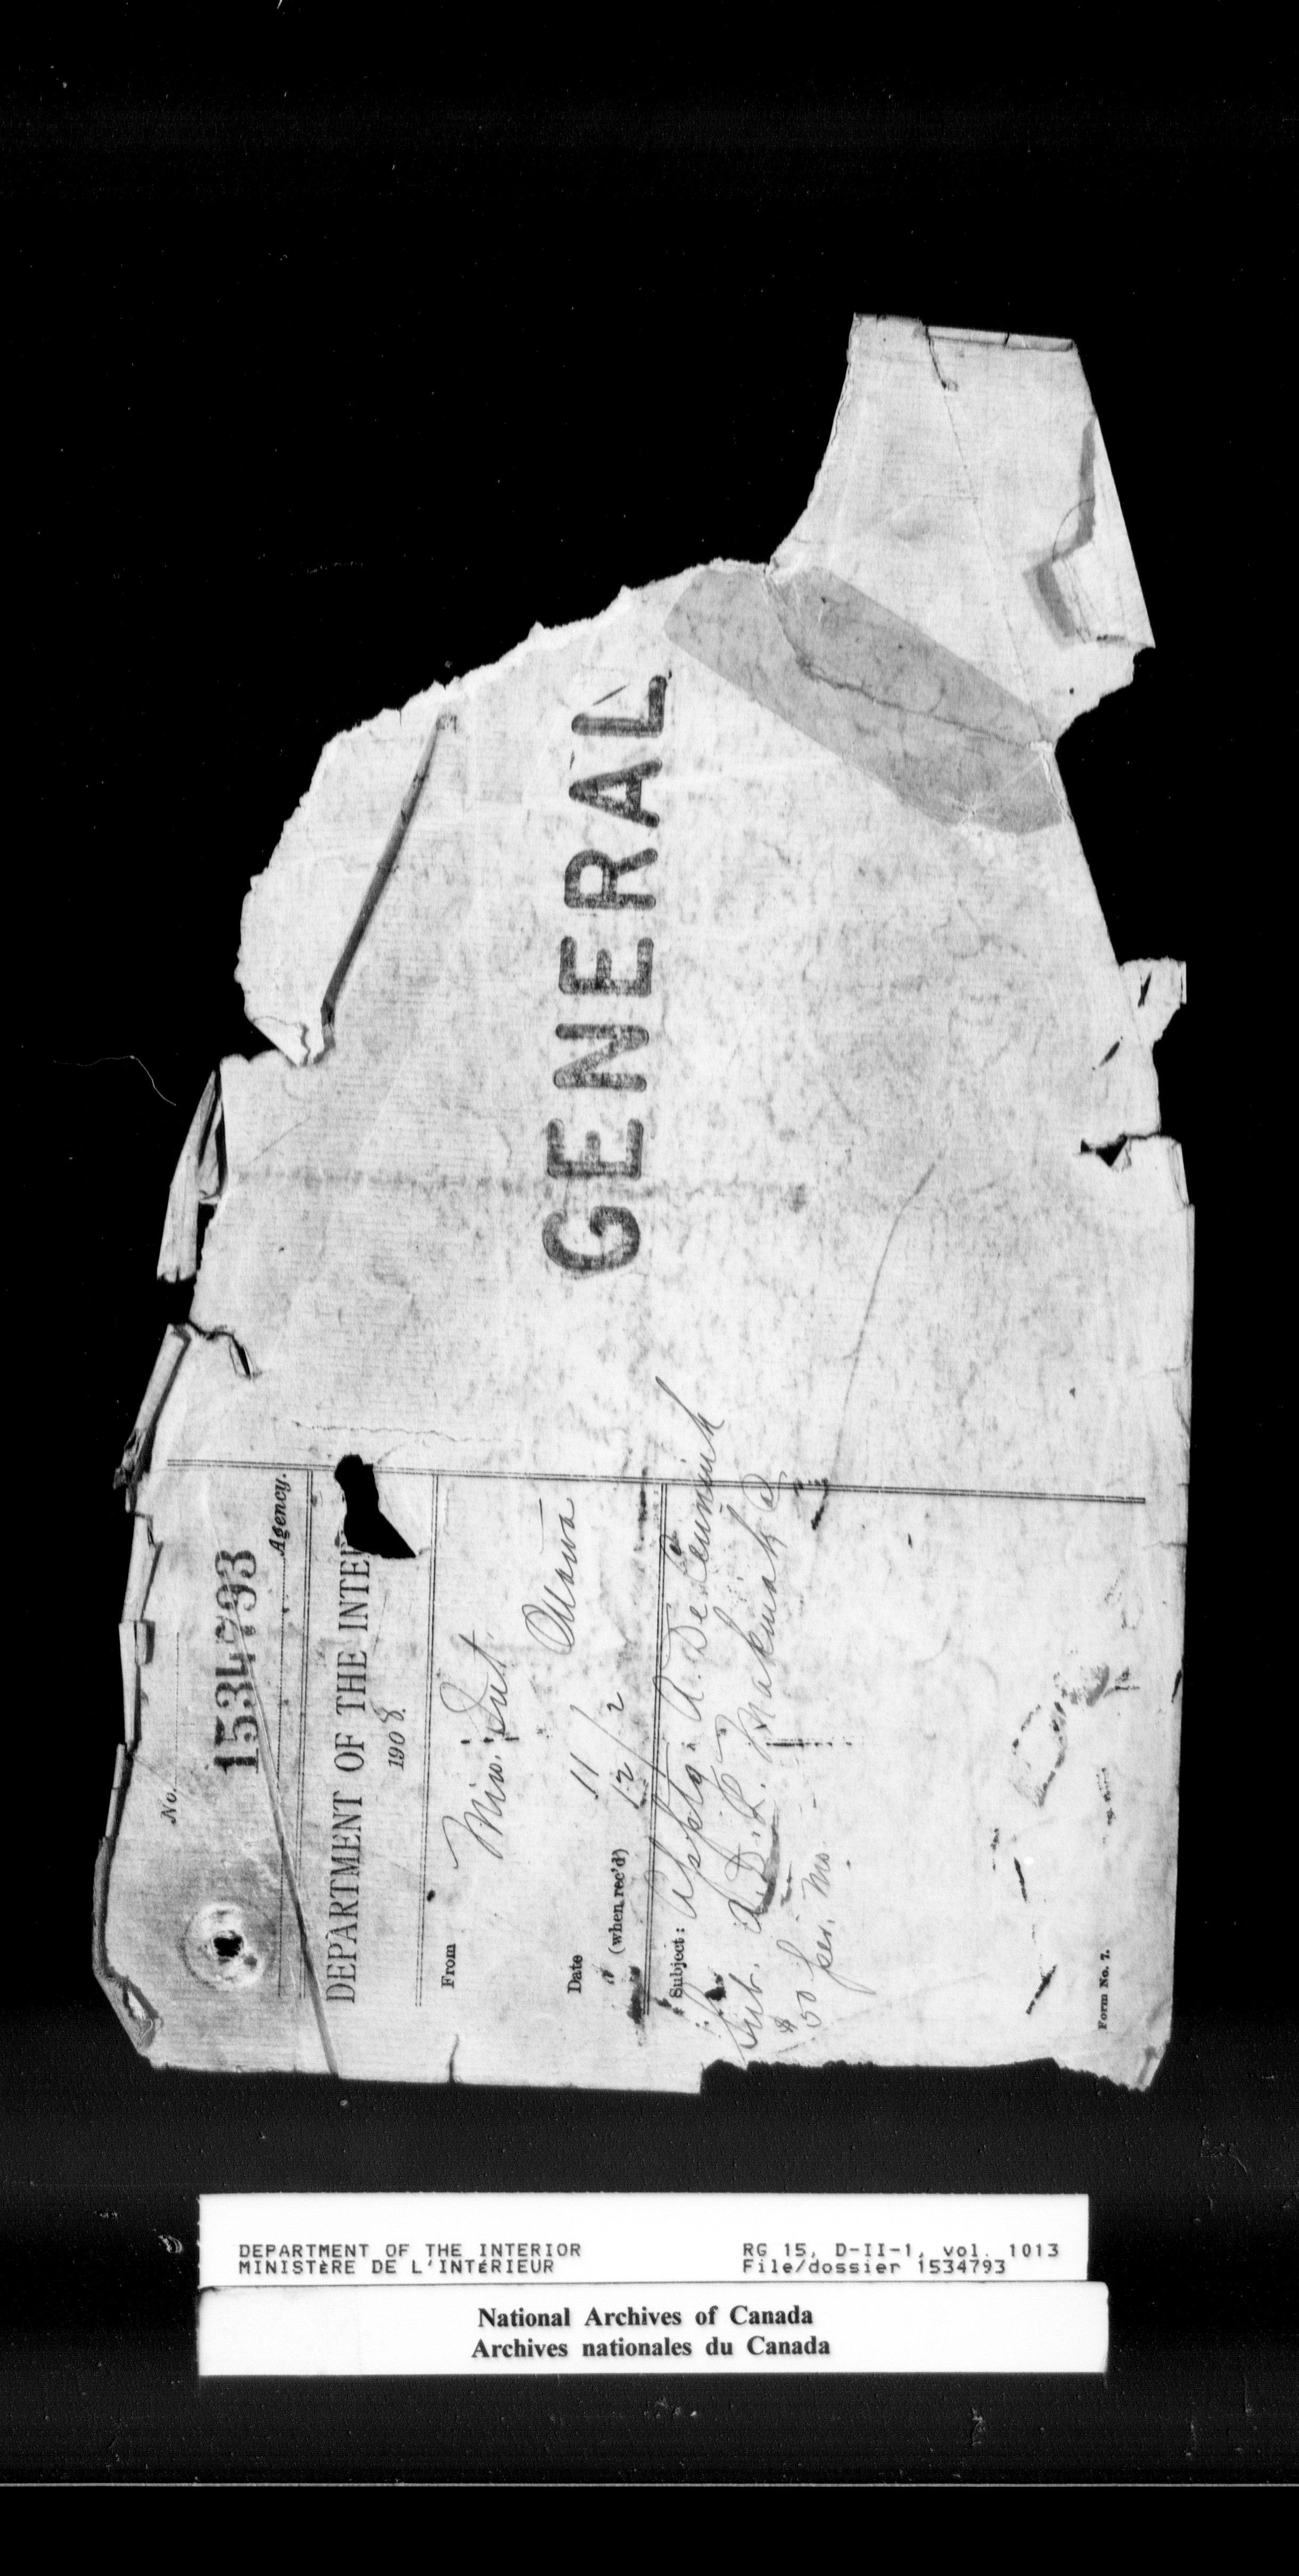 No.
1534793
Agency.
DEPARTMENT OF THE INTE
1908.
From
Min. Int.
Ottawa
Date 11
" (when rec'd) 12/2
Subject: Apptg. A. De
Sub. A.D.L.
$50 per. mo.
Form No. 7.
GENERAL
DEPARTMENT OF THE INTERIOR
MINISTÈRE DE L'INTÉRIEUR
RG 15, D-II-1, vol. 1013
File/dossier 1534793
National Archives of Canada
Archives nationales du Canada